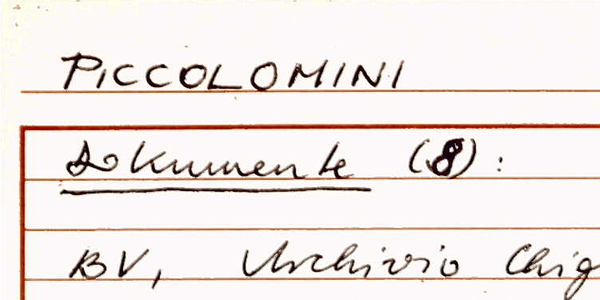 PICCOLOMINI
Dokumente (8):
BV, Archivio Chig